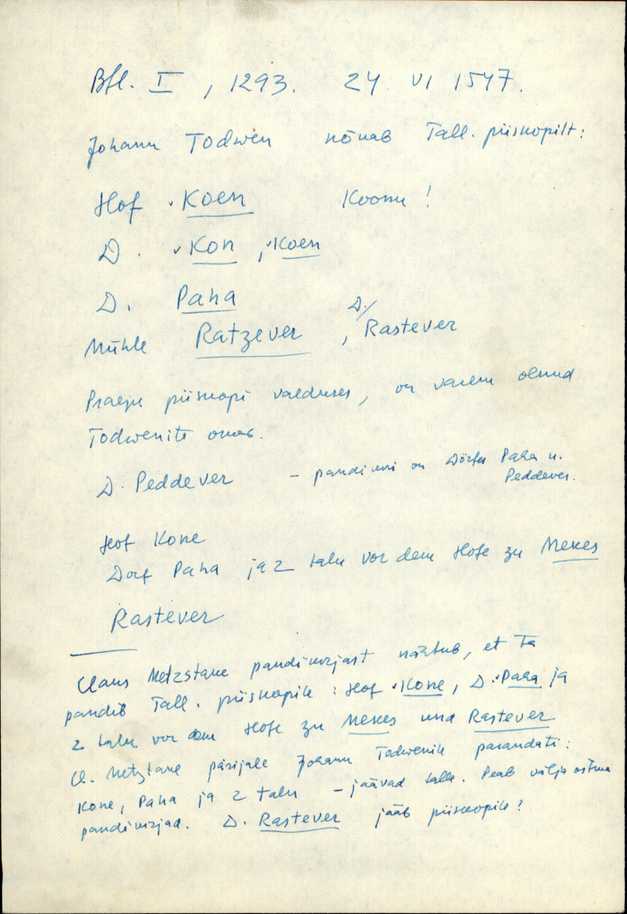 Bfl. I, 1293. 24 VI 1547.
Johann Todwen nõuab Tall. piiskopilt:
Hof Koen Koonu!
D. Kon, Koen
D. Paha
Mühle Ratzever, D/ Rastever
Praegu piiskopi valduses, on varem olnud
Todwenite omad.
D. Peddever – pandi on Dörfer Paha u.
Peddever.
Hof Kone
Dorf Paha ja 2 talu vor dem Hofe zu Mekes
Rastever
Claus Metzstake pandikirjast nähtub, et ta
pandib Tall. piiskopile: Hof Kone, D. Paha ja
2 talu vor dem Hofe zu Mekes und Rastever
Cl. Metzstake pärijale Johann Todwenile parandati:
Kone, Paha ja 2 talu – jäävad talle. Peab välja ostma
pandikirjad. D. Rastever jääb piiskopile?